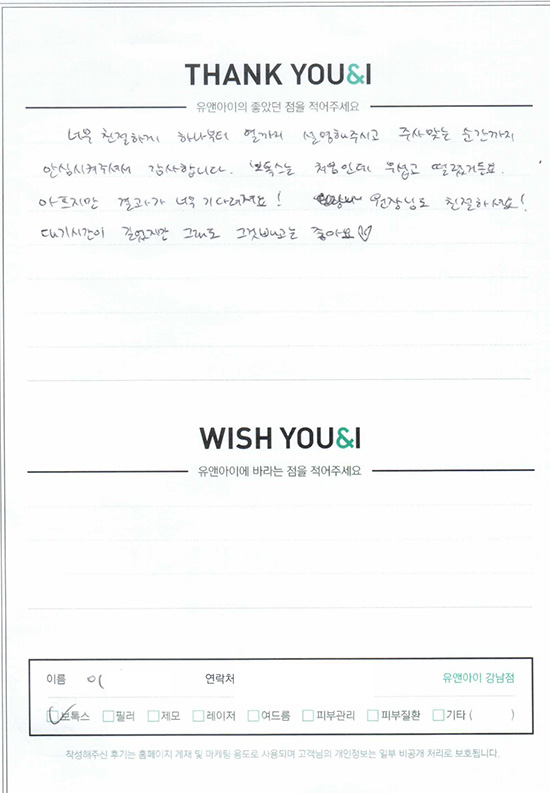 THANK YOU&I
유앤아이의 좋았던 점을 적어주세요
너무 친절하게 하나부터 열까지 설명해주시고 주사맞는 순간까지
안심시켜주셔서 감사합니다. 보톡스는 처음인데 무섭고 떨렸거든요.
아프지만 결과가 너무 기다려져요! 원장님도 친절하셔요!
대기시간이 길었지만 그래도 그것빼고는 좋아요♡
WISH YOU&I
유앤아이에 바라는 점을 적어주세요
이름 이 연락처 유앤아이 강남점
보톡스 필러 제모 레이저 여드름 피부관리 피부질환 기타 ( )
작성해주신 후기는 홈페이지 게재 및 마케팅 용도로 사용되며 고객님의 개인정보는 일부 비공개 처리로 보호됩니다.